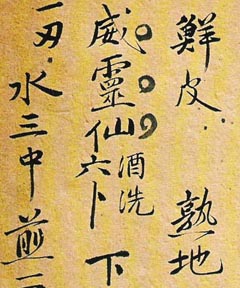 鮮皮 熟地
威靈仙 酒洗 六卜 下
水三中煎一